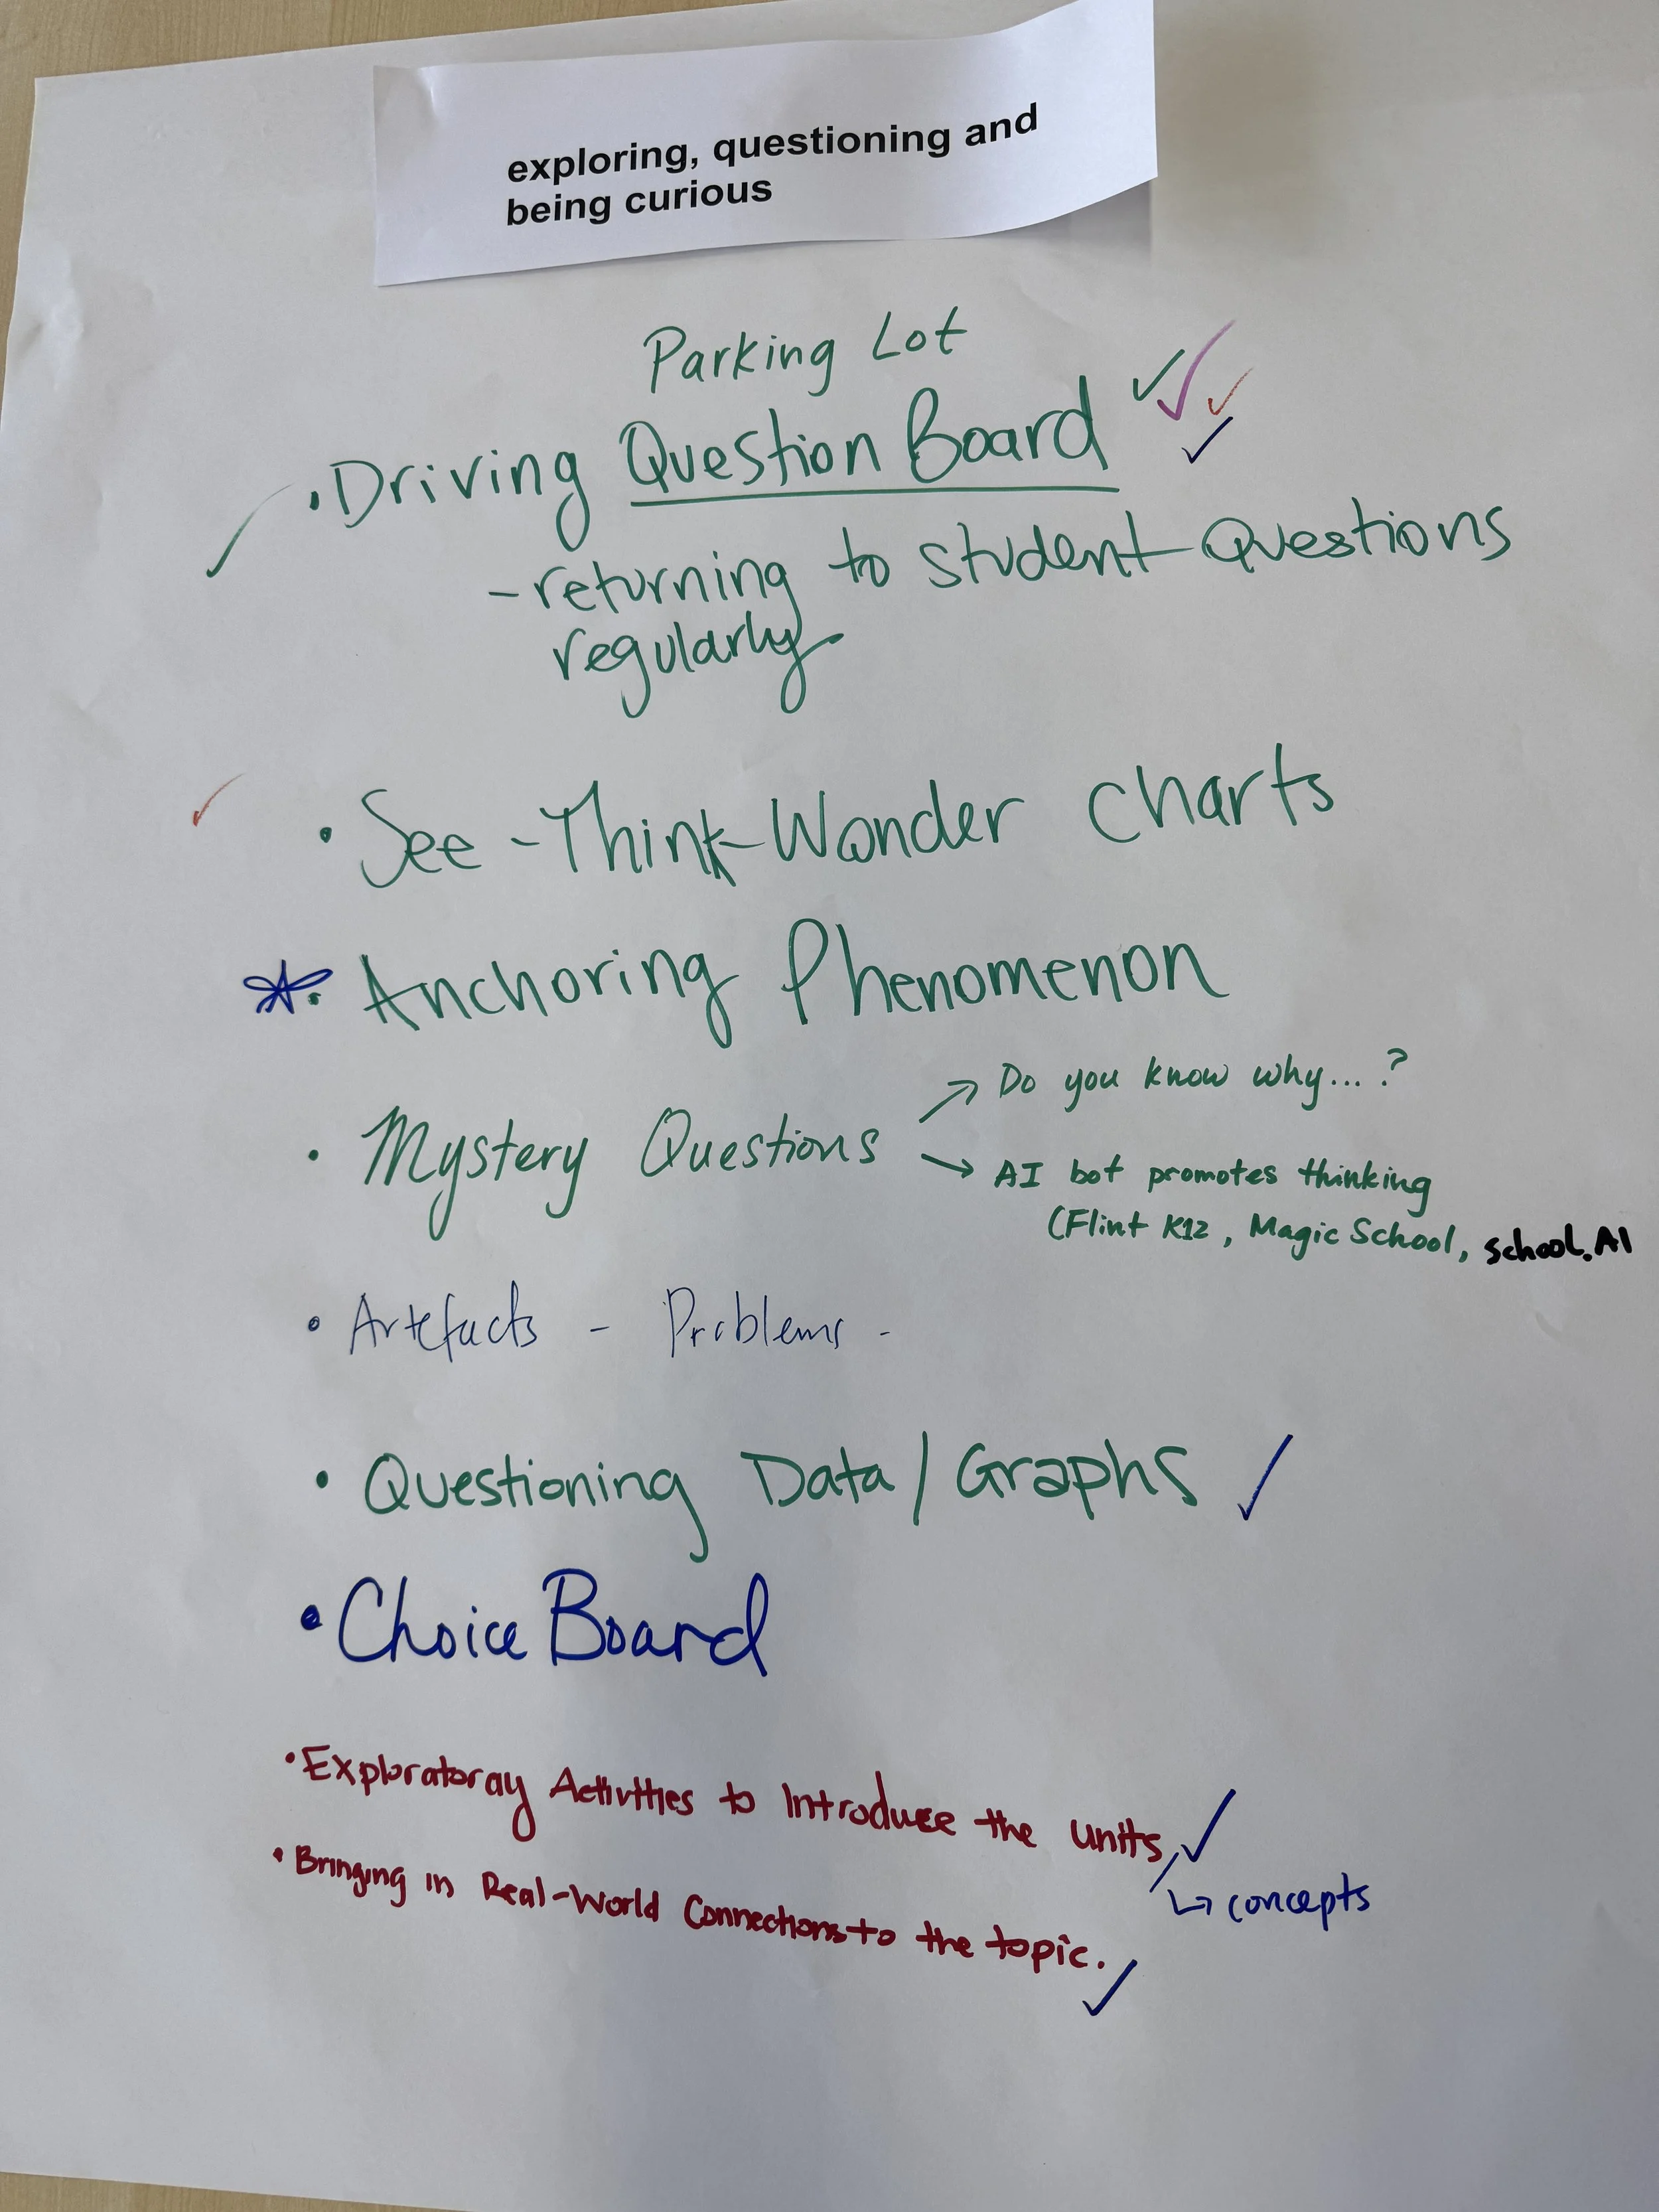 exploring, questioning and
being curious
Parking Lot
• Driving Question Board ✓✓✓✓
- returning to student questions
regularly
✓ • See-Think-Wonder charts
* • Anchoring Phenomenon
→ Do you know why...?
• Mystery Questions
→ AI bot promotes thinking
(Flint K12, Magic School, school.AI
• Artefacts - Problems -
• Questioning Data / Graphs ✓
• Choice Board
• Exploratoray Activities to Introduce the units ✓
/ ↳ concepts
• Bringing in Real-World Connections to the topic. ✓